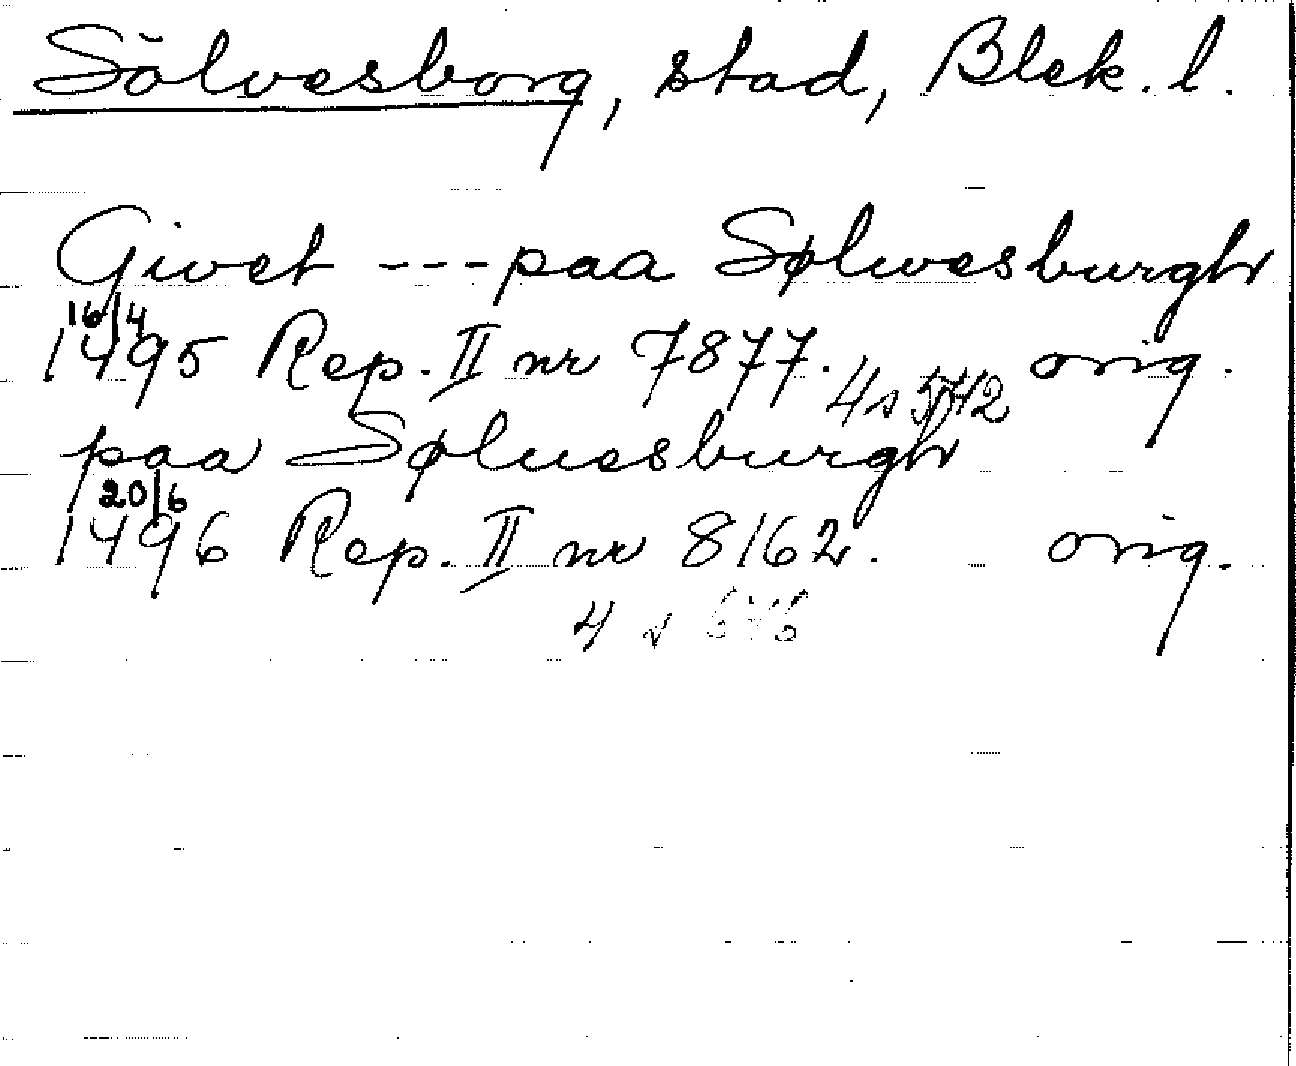 Sölvesborg, stad, Blek. l.
Givet --- paa Sølwesburgh
16/4
1495 Rep. II nr 7877. orig.
4 s
paa Søluesburgh
20/6
1496 Rep. II nr 8162. orig.
4 s